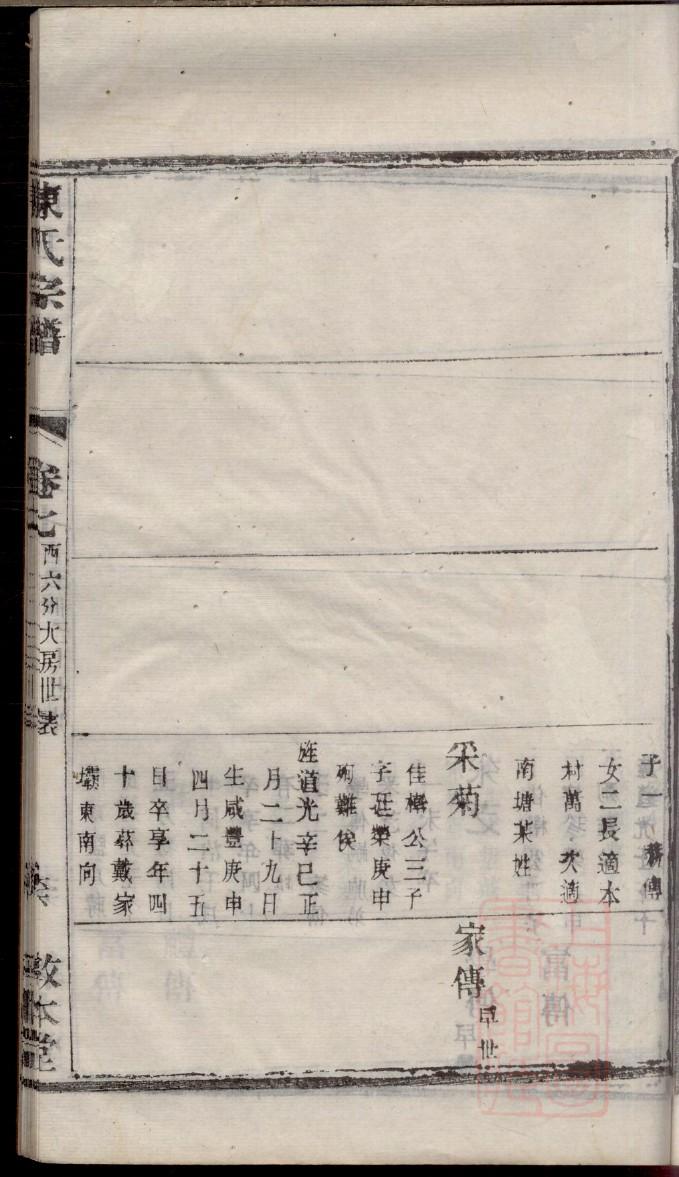 子一
女二長適本
村萬珍　次適
南塘某姓
采菊
佳構公三子
字廷榮庚申
殉難俟
旌道光辛巳正
月二十九日
生咸豐庚申
四月二十五
日卒享年四
十歲葬戴家
壩東南向
家傳 早世
陳氏宗譜
卷七
西六分大房世表
敦本堂